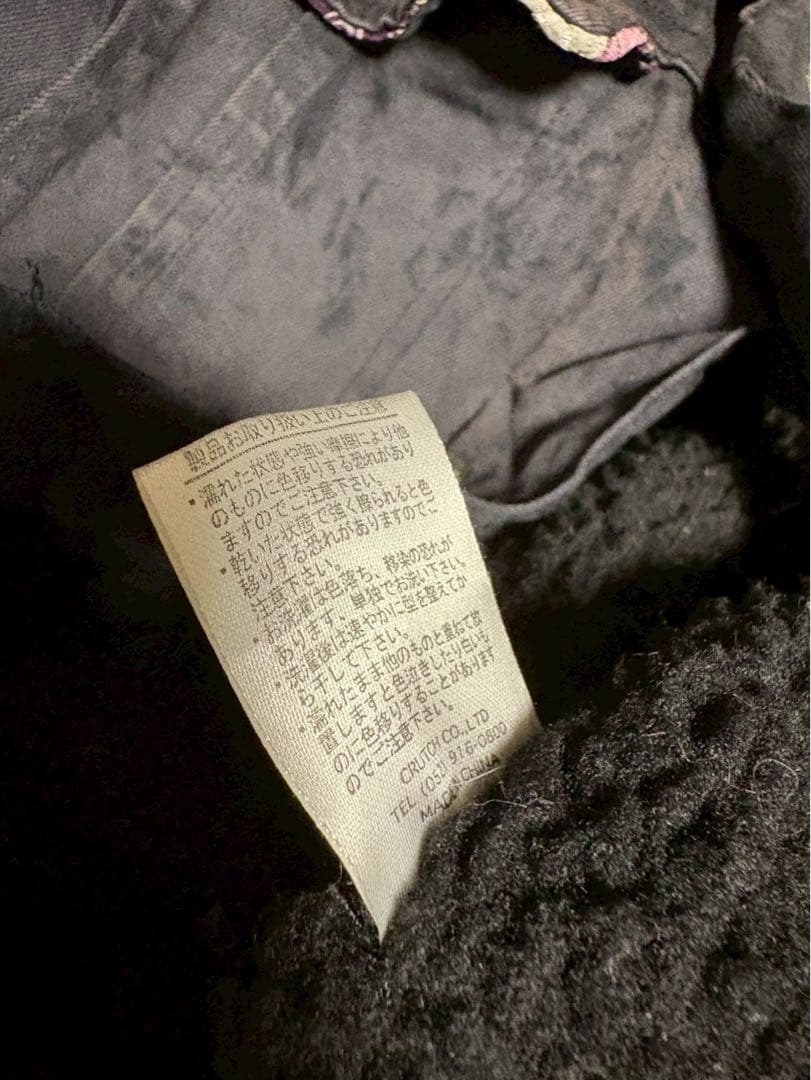 製品お取り扱い上のご注意
・濡れた状態や強い摩擦により他
のものに色移りする恐れがあり
ますのでご注意下さい。
・乾いた状態で強く擦られると色
移りする恐れがありますのでご
注意下さい。
・お洗濯は色落ち、移染の恐れが
あります、単独でお洗い下さい。
・洗濯後は速やかに型を整えてか
ら干して下さい。
・濡れたまま他のものと重ねて放
置しますと色泣きしたり白いも
のに色移りすることがあります
のでご注意下さい。
CRUTCH CO.,LTD
TEL (052) 916-0800
MADE CHINA